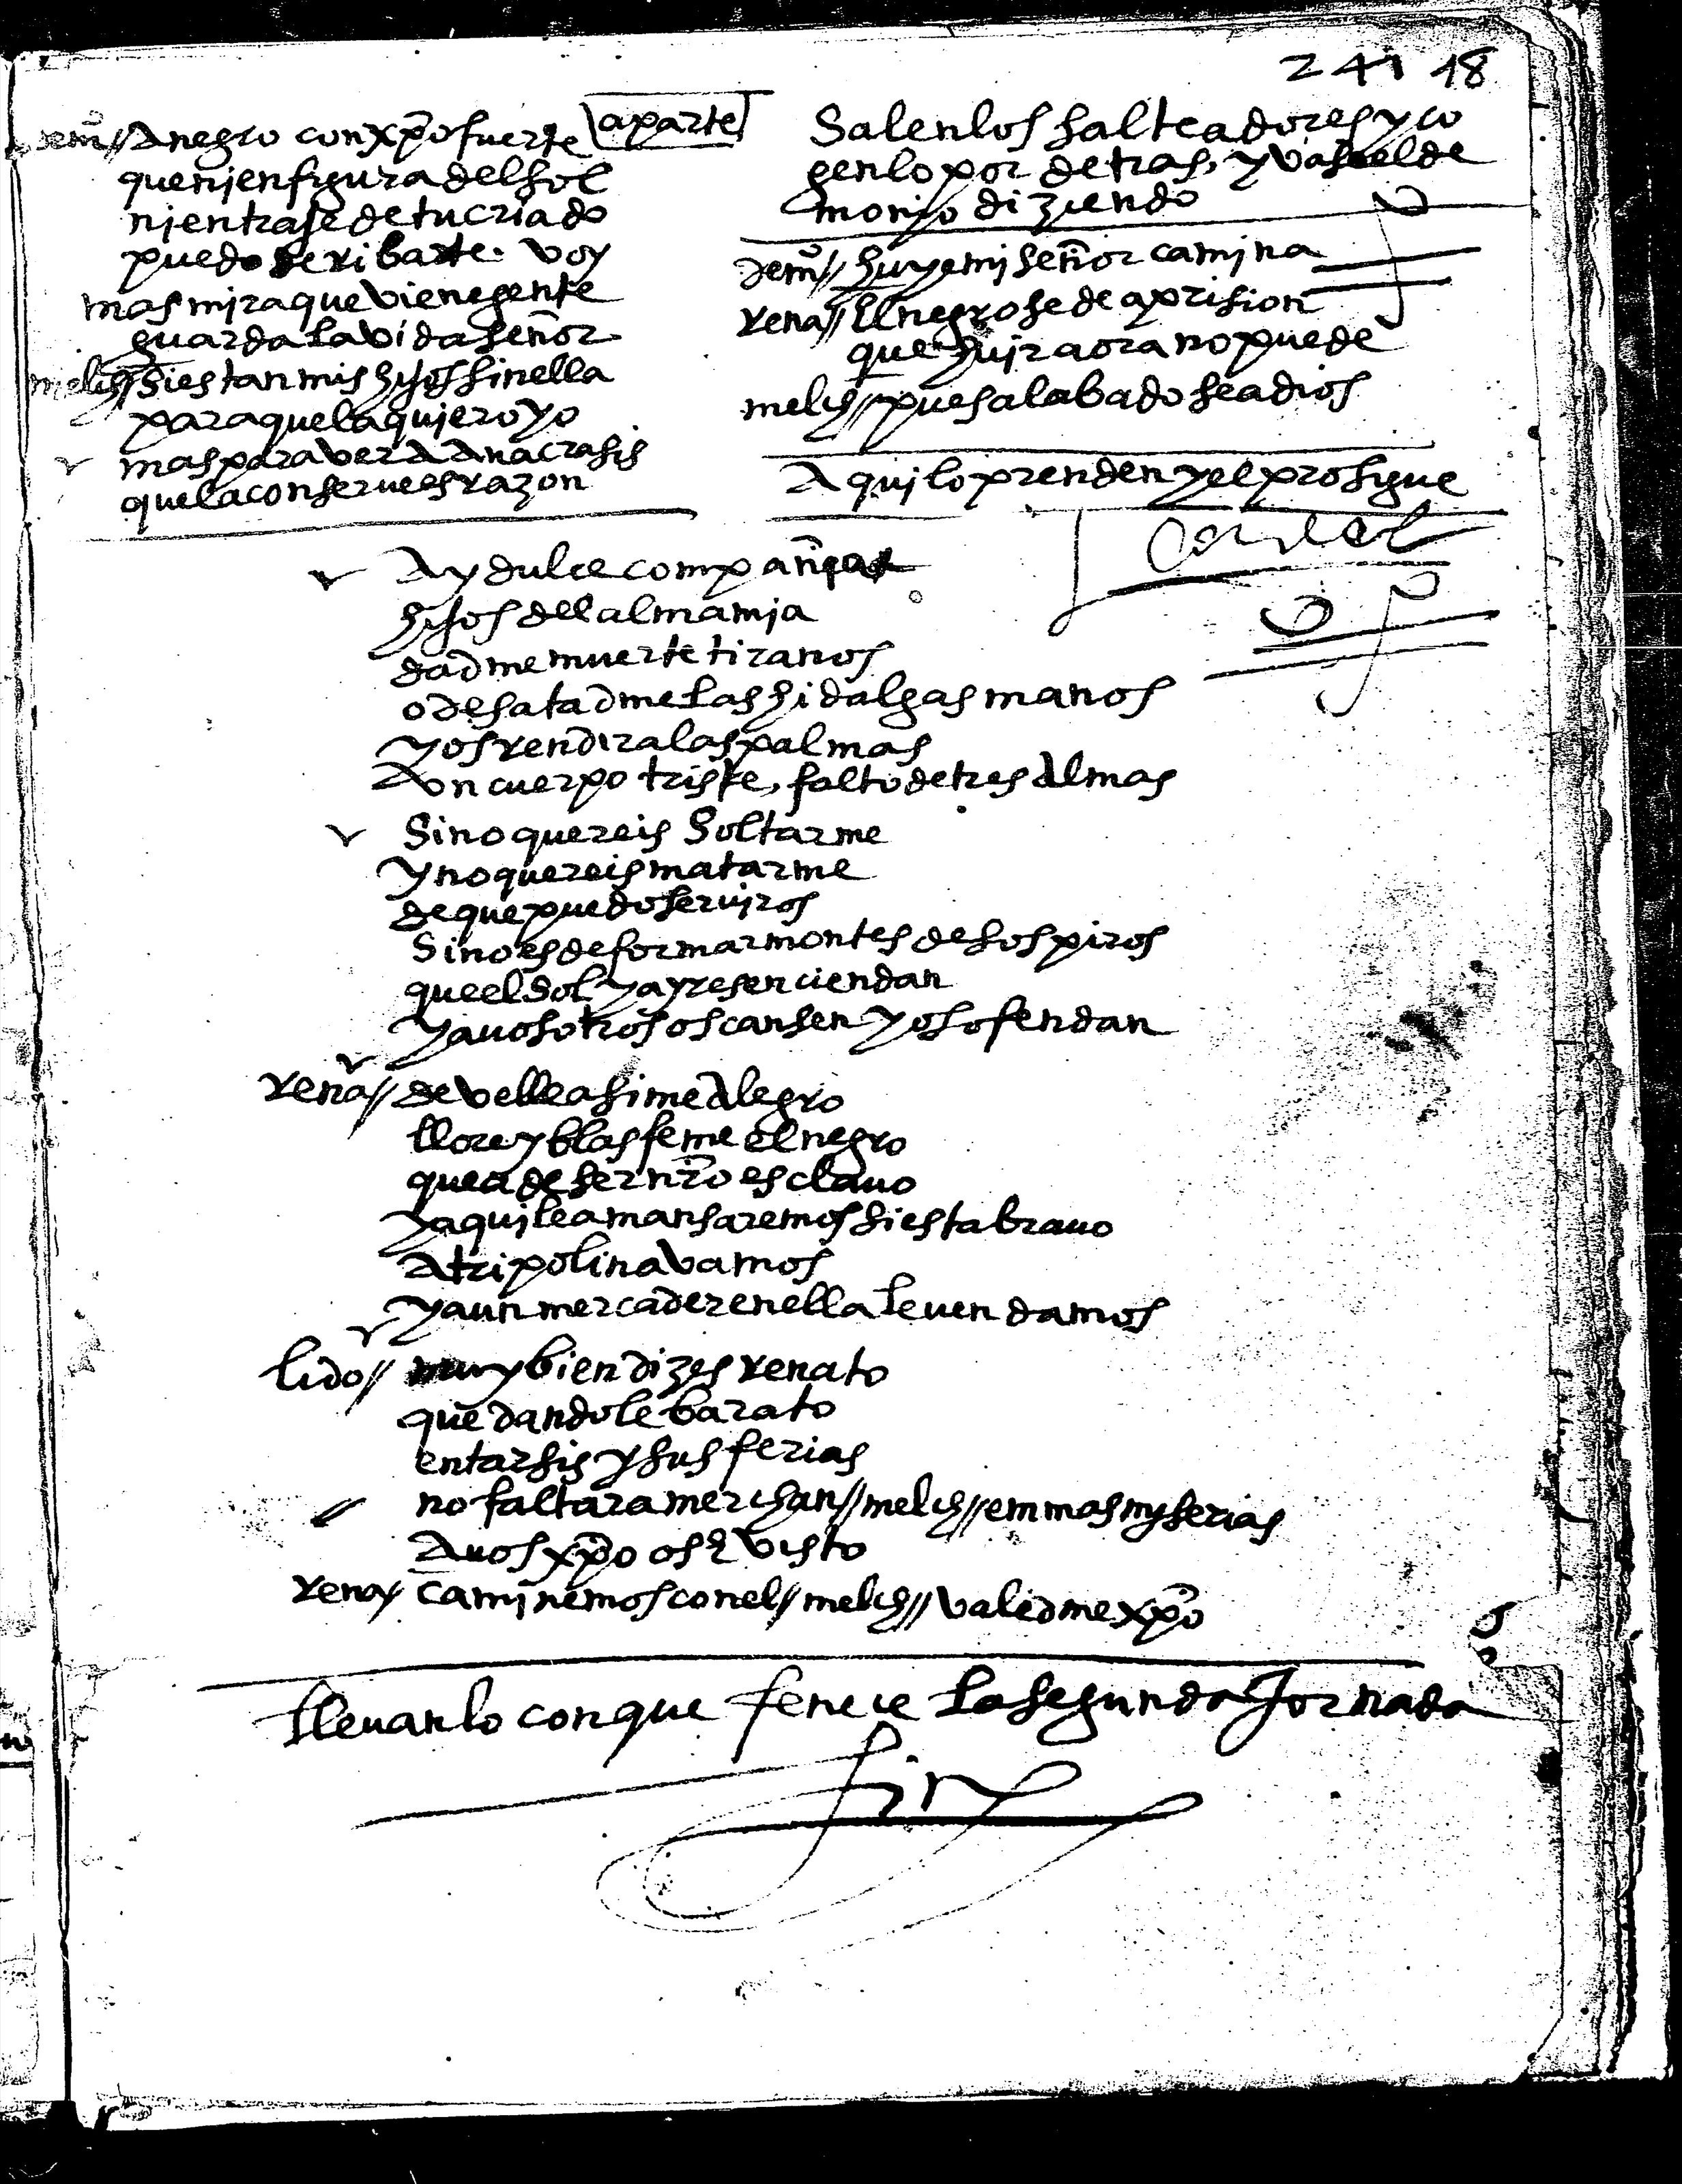 241 18
demo// A negro con xpo fuerte aparte
que ni en figura del sol
ni en traje de tu criado
puedo deribarte. voy
mas mira que viene gente
guarda la vida señor
melch// si estan mis hijos sin ella
para que la quiero yo
mas para ver a Anacrasis
que la conserue es razon
Salen los salteadores y co
genlo por detras, y vase el de
monio diziendo
demo// huye mi señor camina
rena// El negro se de a prision
que huir aora no puede
melch// pues alabado sea dios
Aqui lo prenden y el prosigue
Ay dulce compañia
hijos del alma mia
dadme muerte tiranos
o desatadme las hidalgas manos
y os rendira las palmas
Un cuerpo triste, falto de tres almas
Si no quereis soltarme
y no quereis matarme
de que puedo seruiros
Sino es de formar montes de sospiros
que el sol y ayres enciendan
y a uosotros os cansen y os ofendan
rena// de velle asi me alegro
llore y blasfeme el negro
que a de ser nro esclauo
y aqui le amansaremos si esta brauo
a tripolina vamos
y a un mercader en ella le uendamos
lido// muy bien dizes renato
que dandole barato
en tarsis y sus ferias
no faltara merchan// melch// em mas myserias
A uos xpo os e visto
rena// caminemos con el// melch// valedme xpo
lleuanlo con que fenece la segunda Jornada
fin